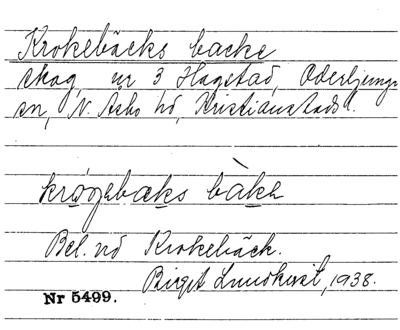 Krokebäcks backe
skog, nr 3 Hagstad, Oderljunga
sn, N. Åsbo hd, Kristianstads l.
krøgebæks bàkə
Bel. vid Krokebäck.
Birgit Lundkvist, 1938.
Nr 5499.